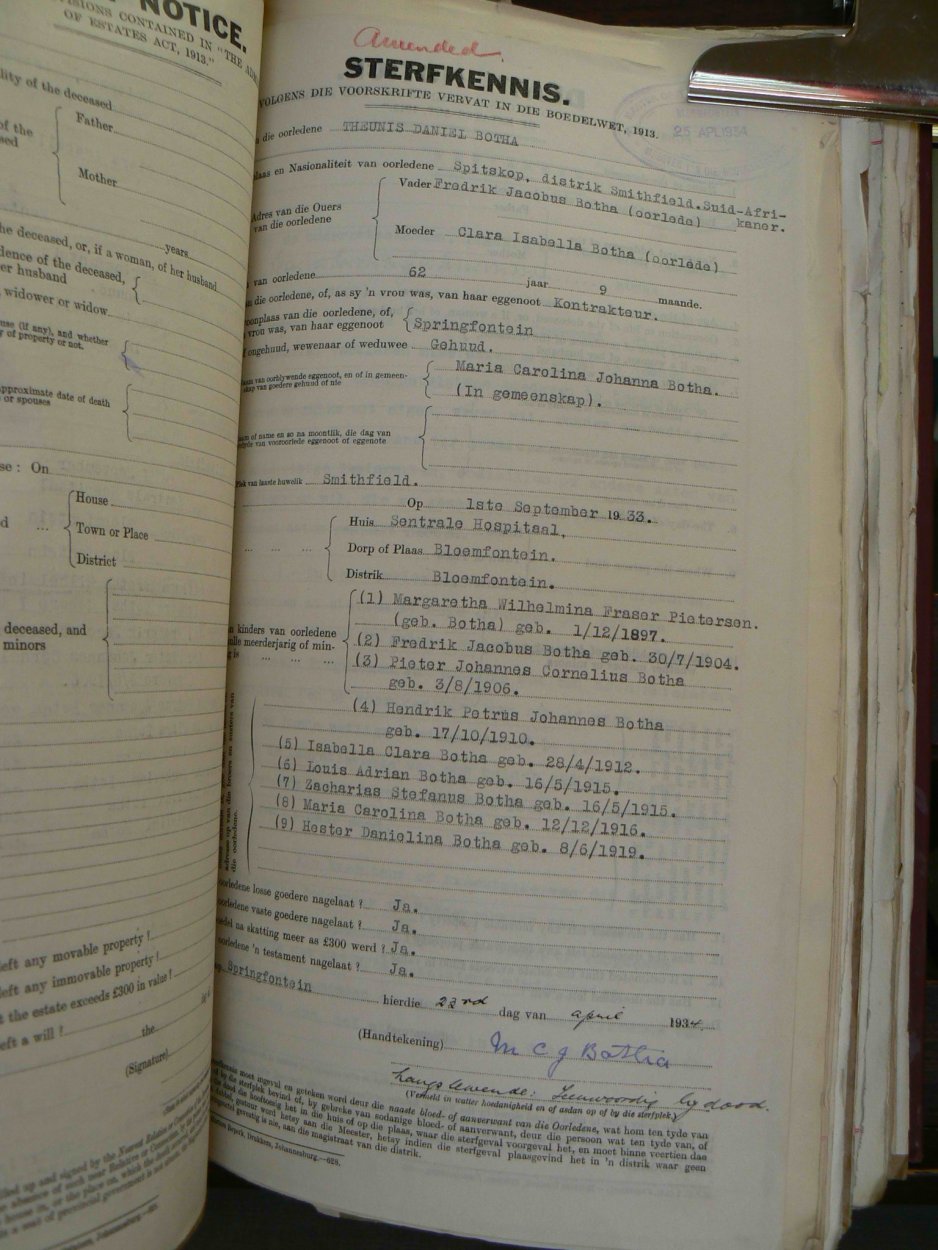 NOTICE.
VISIONS CONTAINED IN "THE ADMI
OF ESTATES ACT, 1913."
ality of the deceased
of the
Father
sed
Mother
years
the deceased, or, if a woman, of her husband
dence of the deceased,
er husband
widower or widow
use (if any), and whether
y of property or not.
approximate date of death
or spouses
se : On
House
d ... Town or Place
District
deceased, and
minors
left any movable property ?
left any immovable property ?
t the estate exceeds £300 in value ?
eft a will ?
the
(Signature)
Amended
STERFKENNIS.
VOLGENS DIE VOORSKRIFTE VERVAT IN DIE BOEDELWET, 1913.
25 APL 1934
die oorledene THEUNIS DANIEL BOTHA
plaas en Nasionaliteit van oorledene Spitskop, distrik Smithfield. Suid-Afri-
kaner.
Adres van die Ouers
van die oorledene
Vader Fredrik Jacobus Botha (oorlede)
Moeder Clara Isabella Botha (oorlede)
van oorledene 62 jaar 9 maande.
die oorledene, of, as sy 'n vrou was, van haar eggenoot Kontrakteur.
oonplaas van die oorledene, of,
vrou was, van haar eggenoot Springfontein
f ongehuud, wewenaar of weduwee Gehuud.
naam van oorblywende eggenoot, en of in gemeen-
skap van goedere gehuud of nie
Maria Carolina Johanna Botha.
(In gemeenskap).
of name en so na moontlik, die dag van
van vooroorlede eggenoot of eggenote
Plek van laaste huwelik Smithfield.
Op 1ste September 1933.
Huis Sentrale Hospitaal,
Dorp of Plaas Bloemfontein.
Distrik Bloemfontein.
n kinders van oorledene
ulle meerderjarig of min-
g is ... ... ...
(1) Margaretha Wilhelmina Fraser Pietersen.
(geb. Botha) geb. 1/12/1897.
(2) Fredrik Jacobus Botha geb. 30/7/1904.
(3) Pieter Johannes Cornelius Botha
geb. 3/8/1906.
(4) Hendrik Petrus Johannes Botha
geb. 17/10/1910.
(5) Isabella Clara Botha geb. 28/4/1912.
(6) Louis Adrian Botha geb. 16/5/1915.
(7) Zacharias Stefanus Botha geb. 16/5/1915.
(8) Maria Carolina Botha geb. 12/12/1916.
(9) Hester Danielina Botha geb. 8/6/1919.
adresse op van die broers en susters van
die oorledene.
oorledene losse goedere nagelaat ? Ja.
oorledene vaste goedere nagelaat ? Ja.
oedel na skatting meer as £300 werd ? Ja.
oorledene 'n testament nagelaat ? Ja.
op Springfontein hierdie 23rd dag van April 1934
(Handtekening) M C J Botha
Langslewende: Teenwoordig by dood.
(Vermeld in watter hoedanigheid en of asdan op of by die sterfplek)
kennis moet ingevul en geteken word deur die naaste bloed- of aanverwant van die Oorledene, wat hom ten tyde van
of by die sterfplek bevind of, by gebreke van sodanige bloed- of aanverwant, deur die persoon wat ten tyde van, of
die dood die hooftoesig het in die huis of op die plaas, waar die sterfgeval voorgeval het, en moet binne veertien dae
daarna gestuur word hetsy aan die Meester, hetsy indien die sterfgeval plaasgevind het in 'n distrik waar geen
gevestig is nie, aan die magistraat van die distrik.
Beperk, Drukkers, Johannesburg.—628.